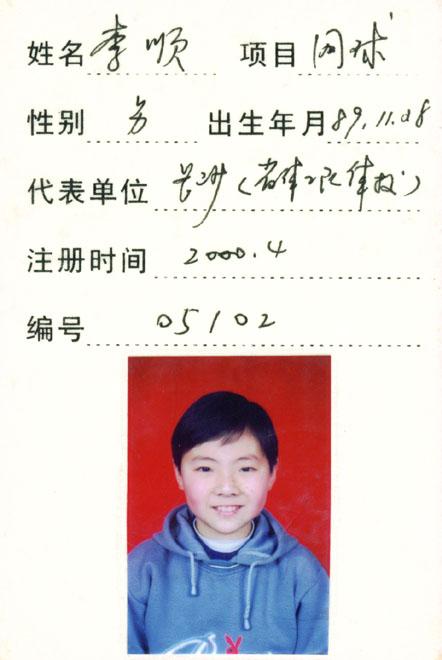 姓名 李顺 项目 网球
性别 男 出生年月 89.11.08
代表单位 长沙(省体工队体校)
注册时间 2000.4
编号 05102